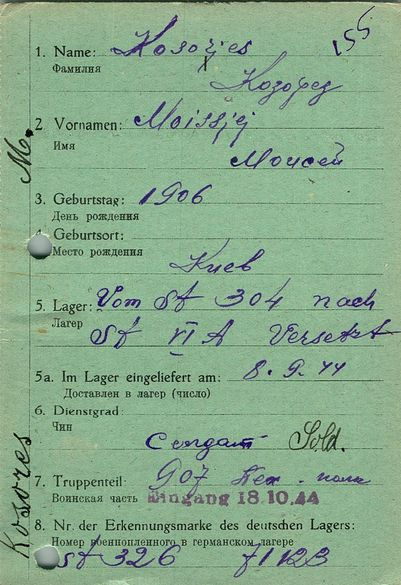 155
1. Name: Kosorjes
Фамилия
Козорез
2. Vornamen: Moissjej
Имя
Моисей
3. Geburtstag: 1906
День рождения
4. Geburtsort:
Место рождения
Киев
5. Lager: Vom St 304 nach
Лагерь
St VI A Versetzt
5a. Im Lager eingeliefert am: 8.9.44
Доставлен в лагерь (число)
6. Dienstgrad:
Чин
Солдат Sold.
7. Truppenteil: 907 Пех - полк
Воинская часть Eingang 18.10.44
8. Nr. der Erkennungsmarke des deutschen Lagers:
Номер военнопленного в германском лагере
St 326
Kosores M.